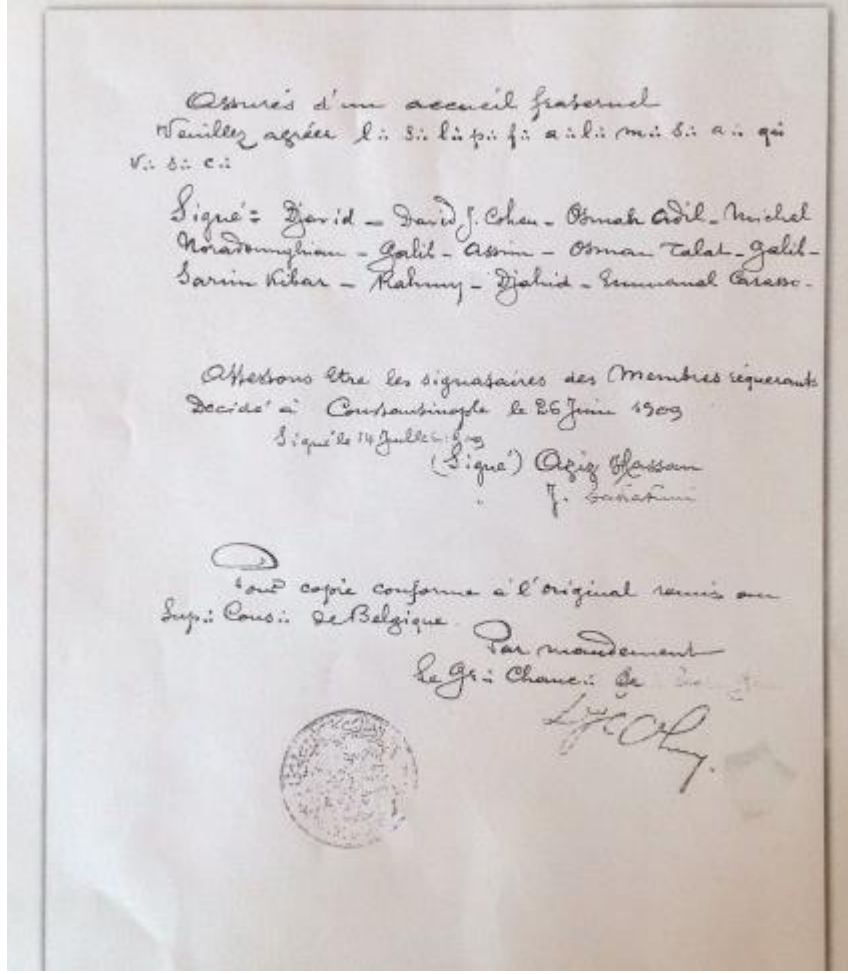 Assurés d'un accueil fraternel
Veuillez agréer l∴ s∴ l∴ p∴ f∴ a∴ l∴ m∴ s∴ a∴ qui
v∴ s∴ c∴
Signé: Djavid - David J. Cohen - Osman Adil - Michel
Noradounghian - Galib - Assim - Osman Talat - Galib -
Sarim Kibar - Rahmy - Djahid - Emmanuel Carasso -
Attestons être les signataires des Membres requerants
Décidé à Constantinople le 26 Juin 1909
Signé le 14 Juillet 1909
(Signé) Aziz Hassan
" J.
Pour copie conforme à l'original remis au
Sup∴ Cons∴ de Belgique.
Par mandement
Le Gr∴ Chanc∴